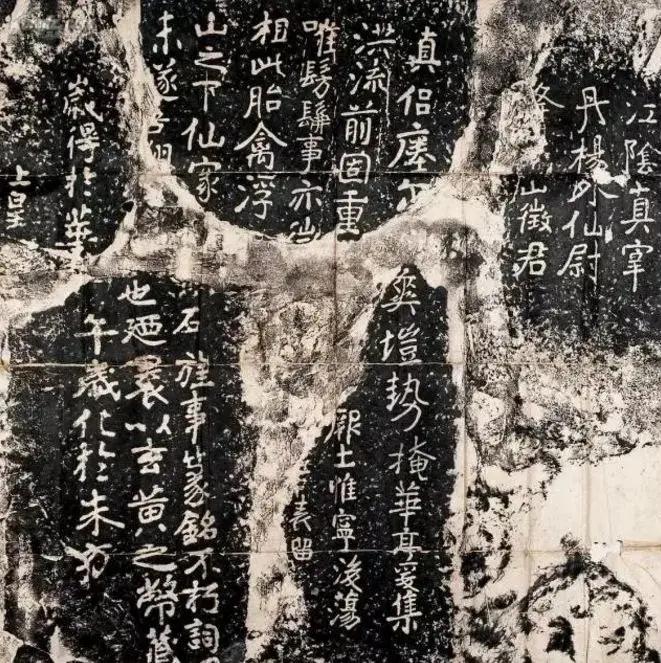 江陰真宰
丹楊外仙尉
山徵君
真侶瘞尔
洪流前固重
唯髣髴事亦
相此胎禽浮
山之下仙家
未遂吾翔
歲得於華
上皇
爽塏勢掩華亭爰集
厥土惟寧後蕩
表留
石旌事篆銘不朽詞
也迺裹以玄黃之幣藏
午歲化於朱方